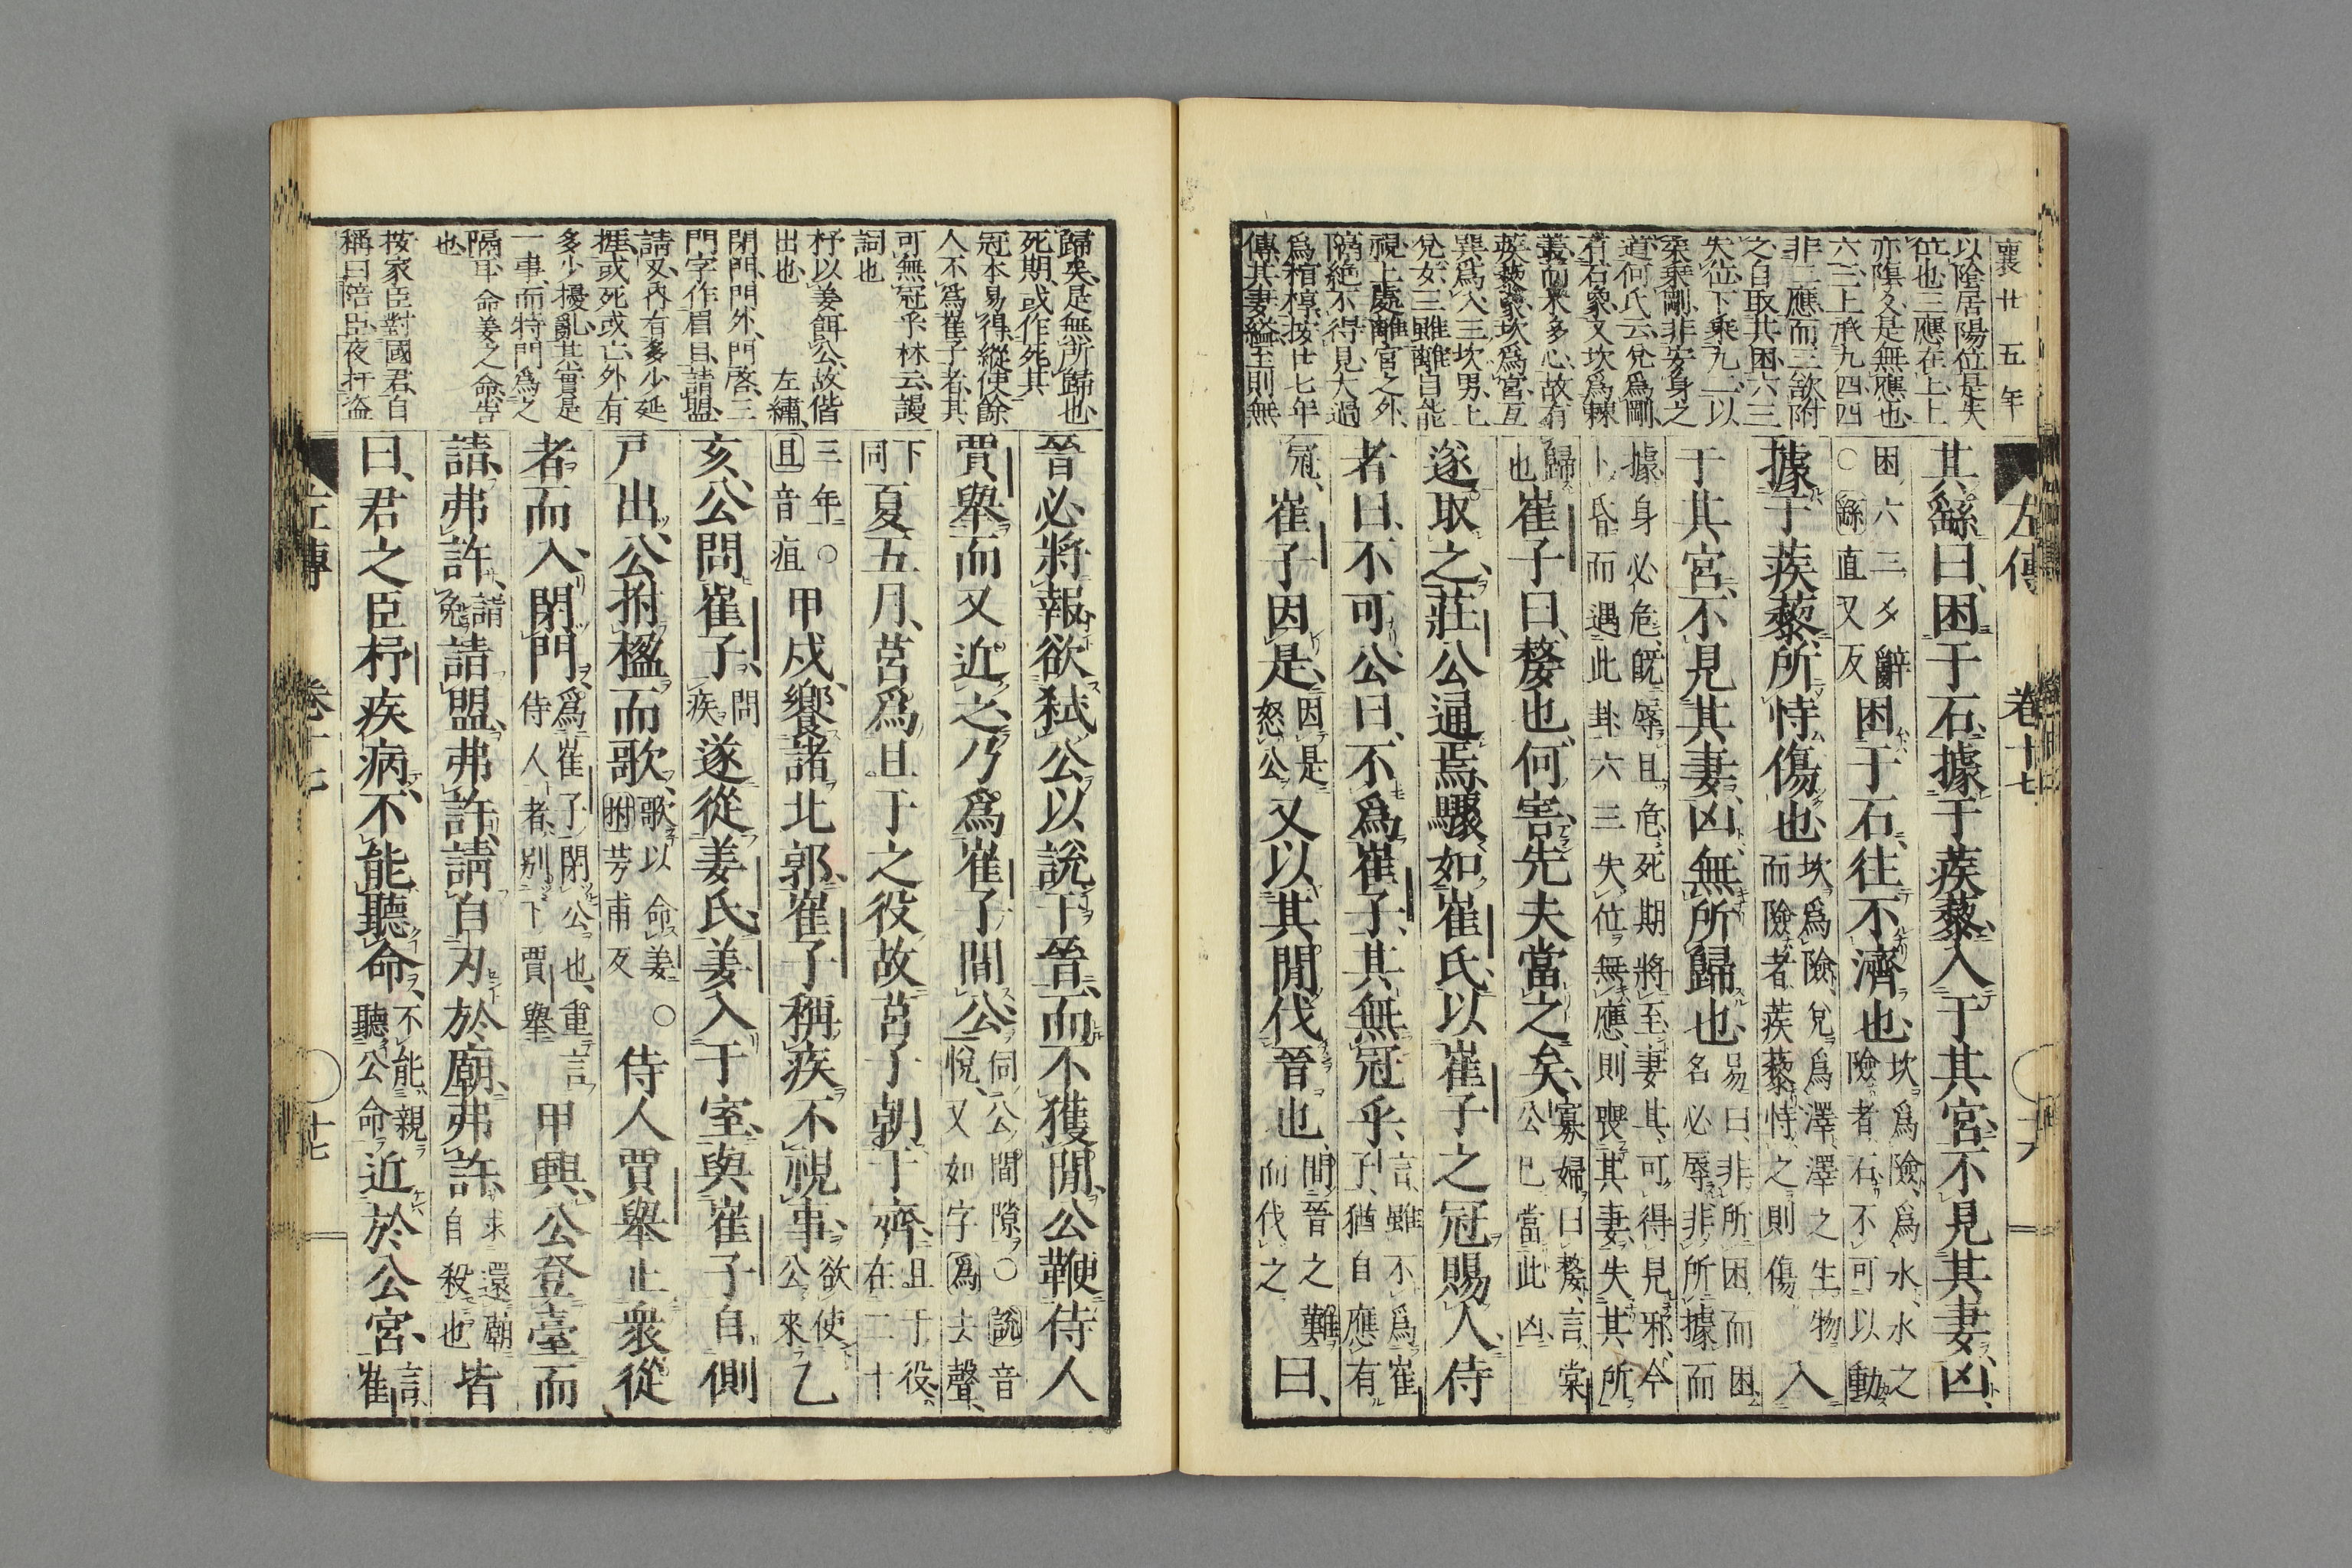 襄廿五年
以陰居陽位是失
位也三應在上上
亦陰爻是無應也
六三上承九四四
非二應而三欲附
之自取其困六三
失位下乘九二以
柔乘剛非安身之
道何氏云兌爲剛
石石象文坎爲棘
叢而木多心故有
蒺藜象坎爲宮互
巽爲入三坎男上
兌女三雖離自能
視上處離宮之外
隔絶不得見大過
爲棺椁按廿七年
傳其妻縊至則無
左傳 卷十七
其繇曰困于石據于蒺藜入于其宮不見其妻凶
困六三爻辭
○繇直又反
困于石往不濟也
坎爲險爲水水之
險者石不可以動
據于蒺藜所恃傷也
坎爲險兌爲澤澤之生物
而險者蒺藜恃之則傷
入
于其宮不見其妻凶無所歸也
易曰非所困而困
名必辱非所據而
據身必危既辱且危死期將至妻其可得見邪今
卜昏而遇此卦六三失位無應則喪其妻失其所
歸
也
崔子曰嫠也何害先夫當之矣
寡婦曰嫠言棠
公已當此凶
遂取之莊公通焉驟如崔氏以崔子之冠賜人侍
者曰不可公曰不爲崔子其無冠乎
言雖不爲崔
子猶自應有
冠
崔子因是
因是
怒公
又以其閒伐晉也
間晉之難
而伐之
曰
歸矣是無所歸也
死期或作死其
冠本易得縱使餘
人不爲崔子者其
可無冠乎林云謾
詞也
杼以姜餌公故偕
出也 左繡
閉門門外門啓三
門字作眉目請盟
請又內有多少延
捱或死或亡外有
多少擾亂其實是
一事而特門爲之
隔耳命姜之命告
也
按家臣對國君自
稱曰陪臣夜扞盜
晉必將報欲弑公以說于晉而不獲閒公鞭侍人
賈舉而又近之乃爲崔子間公
伺公間隙○說音
悅又如字爲去聲
下
同
夏五月莒爲且于之役故莒子朝于齊
且于役
在二十
三年○
且音疽
甲戌饗諸北郭崔子稱疾不視事
欲使
公來
乙
亥公問崔子
問
疾
遂從姜氏姜入于室與崔子自側
戸出公拊楹而歌
歌以命姜○
拊芳甫反
侍人賈舉止衆從
者而入閉門
爲崔子閉公也重言
侍人者別下賈舉
甲興公登臺而
請弗許
請
免
請盟弗許請自刃於廟弗許
求還廟
自殺也
皆
曰君之臣杼疾病不能聽命
不能親
聽公命
近於公宮
言
崔
左傳 卷十七 十七